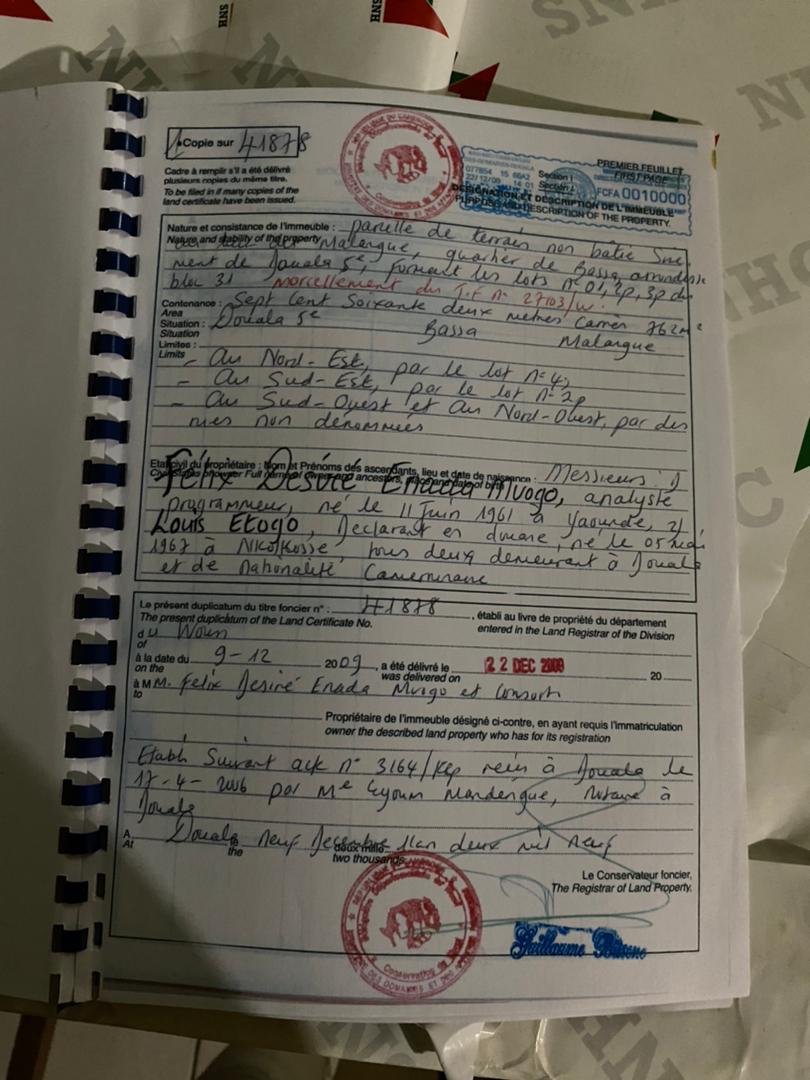 SNH
NHC
Copie sur 41878
Cadre à remplir s'il a été délivré
plusieurs copies du même titre.
To be filed in if many copies of the
land certificate have been issued.
PREMIER FEUILLET
FIRST PAGE
FCFA 0010000
DÉSIGNATION ET DESCRIPTION DE L'IMMEUBLE
PURPOSE AND DESCRIPTION OF THE PROPERTY.
Nature et consistance de l'immeuble : parcelle de terrain non bâtie
Nature and stability of the property Malangue, quartier de Bassa, arrondisse
ment de Douala 5e, formant les lots n° 01, 2p, 3p du
bloc 31 morcellement du T.F n° 27103/w.
Contenance : Sept Cent Soixante deux mètres Carrés 762m²
Area
Situation : Douala 5e Bassa Malangue
Situation
Limites :
Limits
- Au Nord-Est, par le lot n° 4,
- Au Sud-Est, par le lot n° 2p
- Au Sud-Ouest et Au Nord-Ouest, par des
rues non dénommées
Etat civil du propriétaire : Nom et Prénoms des ascendants, lieu et date de naissance : Messieurs 1)
Félix Désiré Enada Mvogo, analyste
programmeur, né le 11 Juin 1961 à Yaoundé, 2)
Louis Etogo, Déclarant en douane, né le 05 mai
1967 à Nkolkosse, tous deux demeurant à Douala
et de Nationalité Camerounaise
Le présent duplicatum du titre foncier n° : 41878, établi au livre de propriété du département
The present duplicatum of the Land Certificate No. entered in the Land Registrar of the Division
du Wouri
of
à la date du 9-12 2009, a été délivré le 22 DEC 2009 20
on the was delivered on
à M M. Felix Desiré Enada Mvogo et Consort
to
Propriétaire de l'immeuble désigné ci-contre, en ayant requis l'immatriculation
owner the described land property who has for its registration
Etabli Suivant acte n° 3164/Rép reçu à Douala le
17-4-2006 par Me Eyoum Mandengue, Notaire à
Douala
A Douala neuf Decembre l'an deux mil neuf
At the deux mille
two thousands
Le Conservateur foncier,
The Registrar of Land Property.